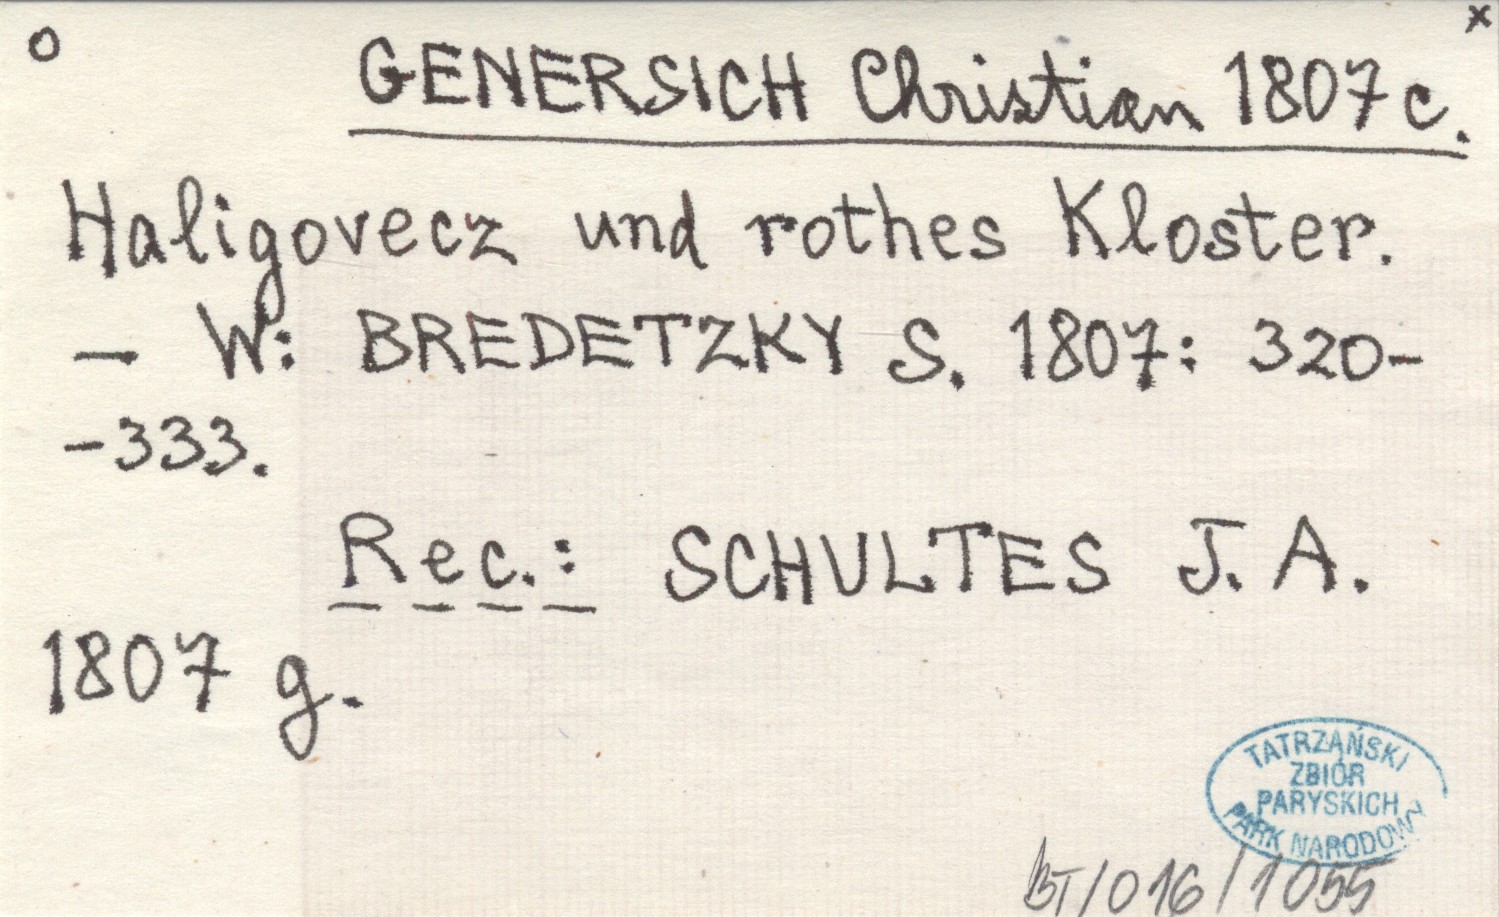 o x
GENERSICH Christian 1807 c.
Haligovecz und rothes Kloster.
— W: BREDETZKY S. 1807: 320-
-333.
Rec.: SCHULTES J. A.
1807 g.
TATRZAŃSKI
ZBIÓR
PARYSKICH
PARK NARODOWY
BT/016/1055